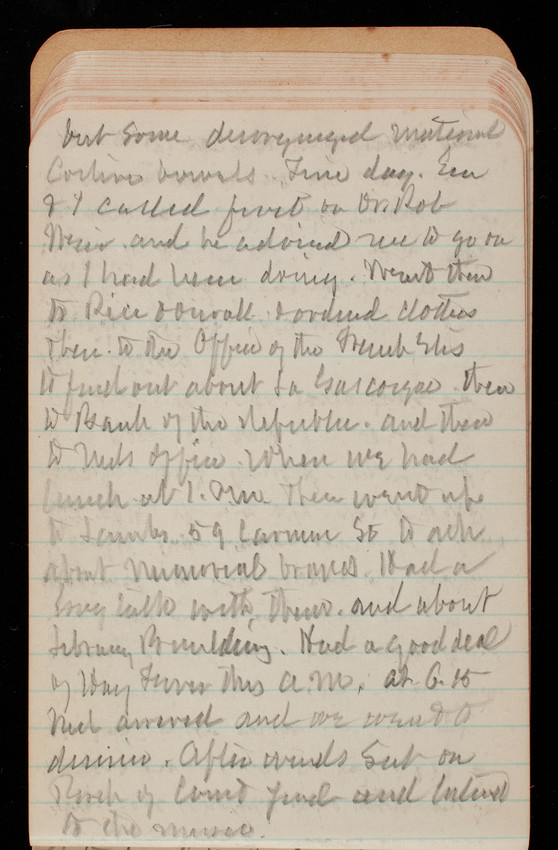 but some discouraged material
Costive bowels. Fine day. Em
& I called first on Dr. Rob
Weir and he advised me to go on
as I had been doing. Went then
to Rice & Duvall & ordered clothes
then to the Office of the French
to find out about La Gascogne. then
to Bank of the Republic. and then
to Neds office. When we had
lunch at 1. P.M. Then went up
to Lambs. 59 Carmine St to ask
about Memorial brasses. Had a
long talk with them. and about
Library Building. Had a good deal
of Hay Fever this A.M. at 6.15
Ned arrived and we went to
dinner. Afterwards sat on
Porch of and listened
to the music.